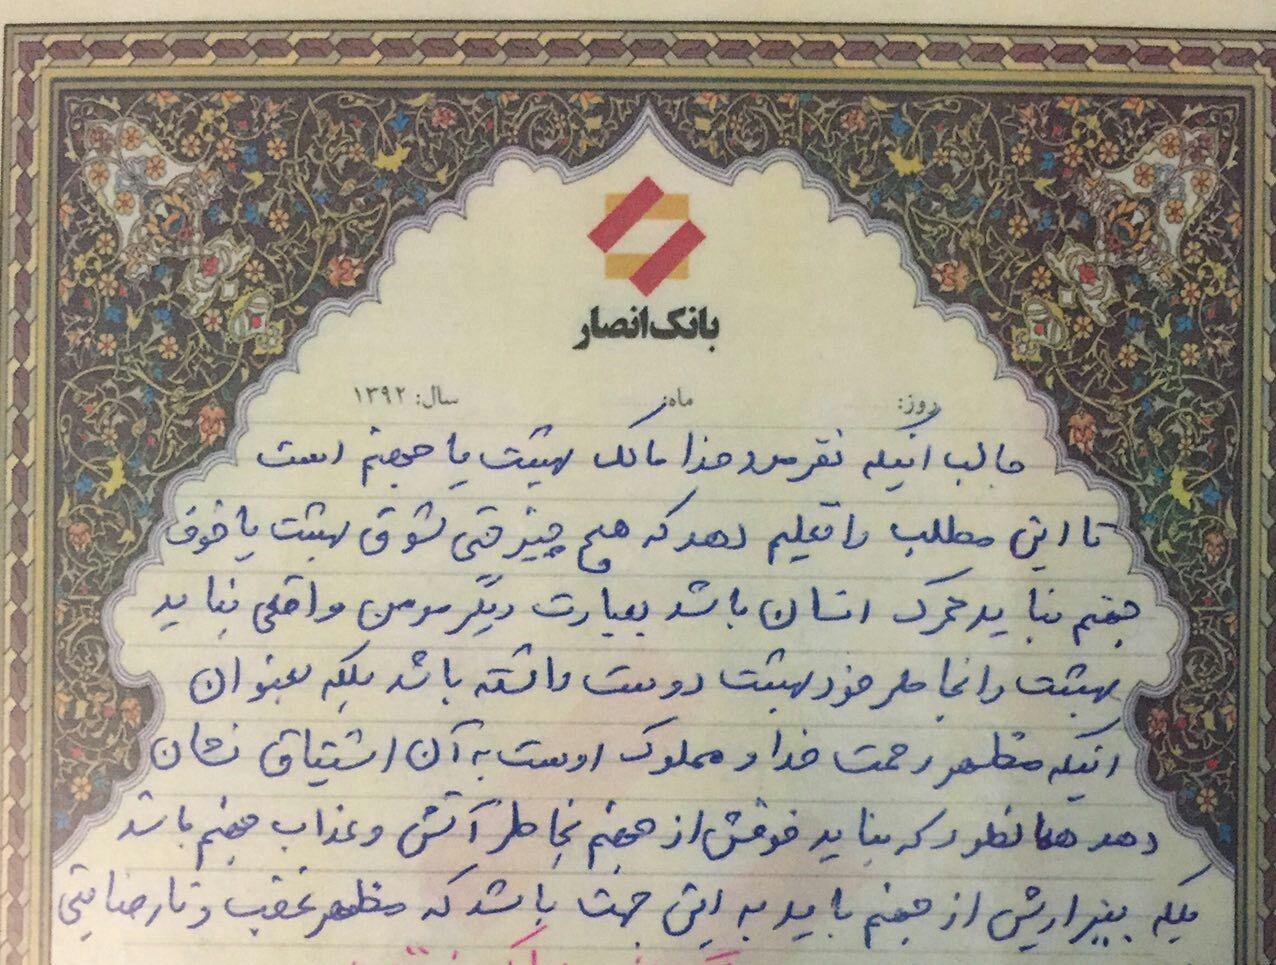 بانک انصار
روز: ماه: سال: ۱۳۹۲
جالب اینکه نفرمود خدا مالک بهشت یا جهنم است
تا این مطلب را تعلیم دهد که هیچ چیز حتی شوق بهشت یا خوف
جهنم نباید محرک انسان باشد بعبارت دیگر مومن واقعی نباید
بهشت را بخاطر خود بهشت دوست داشته باشد بلکه بعنوان
اینکه مظهر رحمت خدا و مملوک اوست به آن اشتیاق نشان
دهد همانطور که نباید خوفش از جهنم بخاطر آتش و عذاب جهنم باشد
بلکه بیزاریش از جهنم باید به این جهت باشد که مظهر غضب و نارضایتی